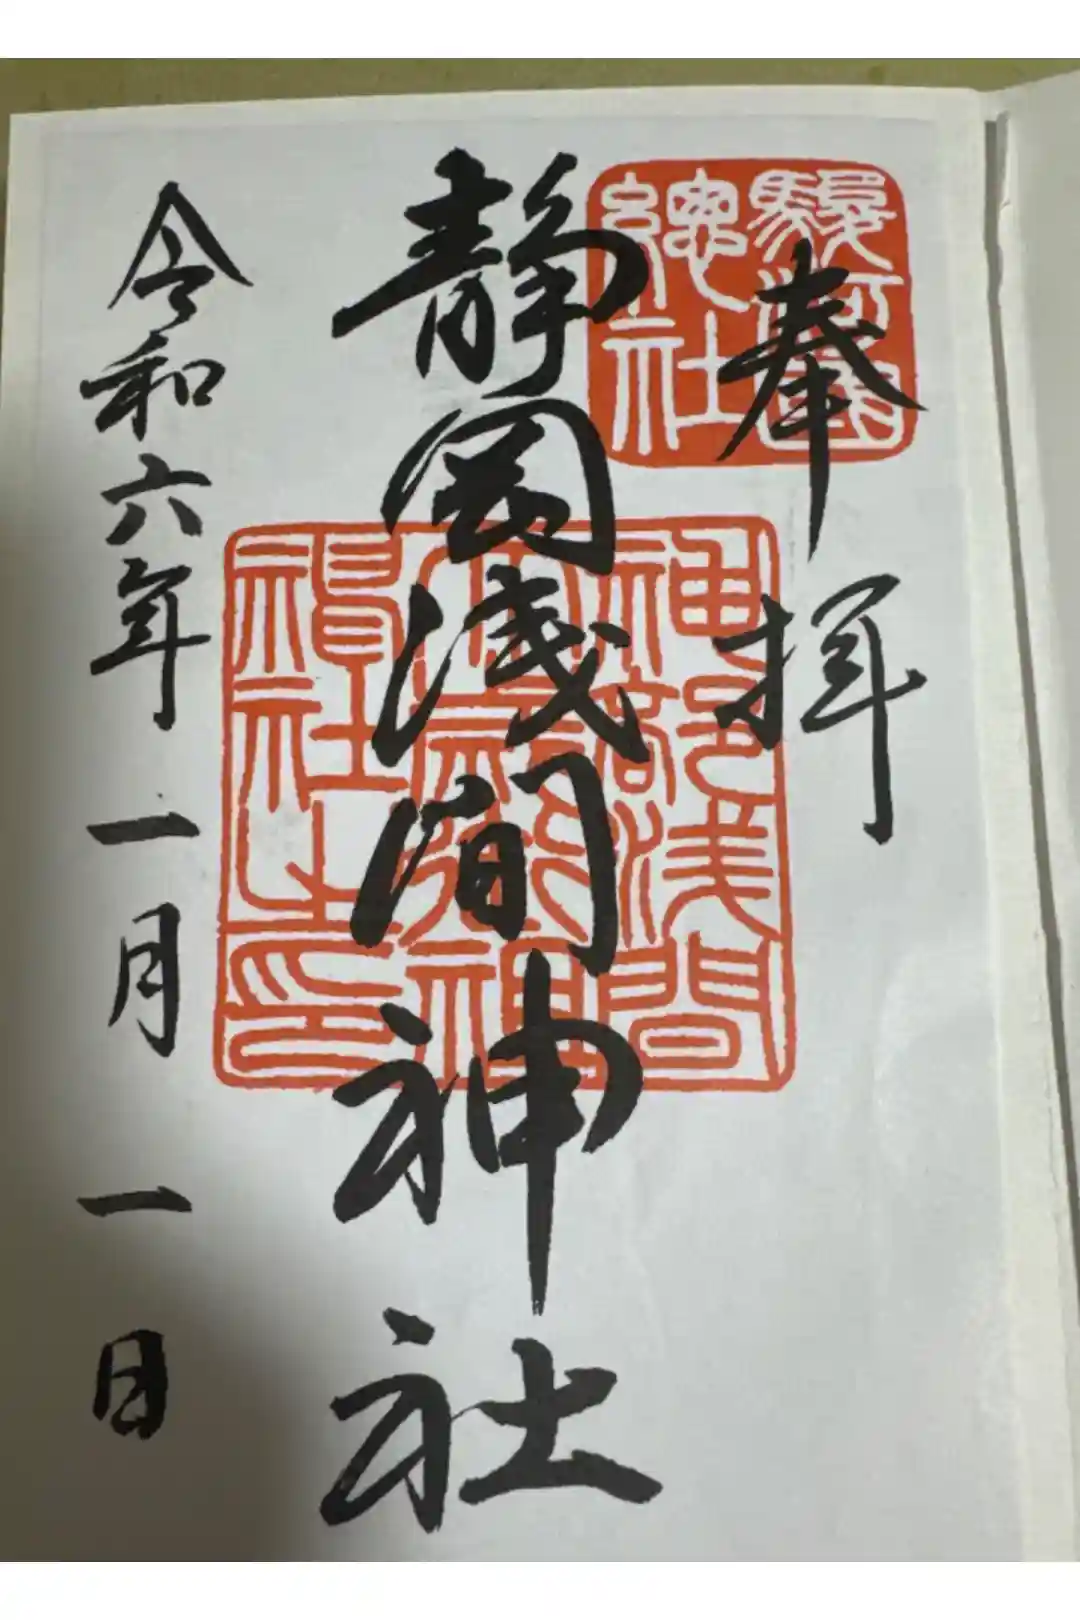 奉拝
駿河國
總社
静岡浅間神社
神部浅間
大歳御祖
神社之印
令和六年一月一日